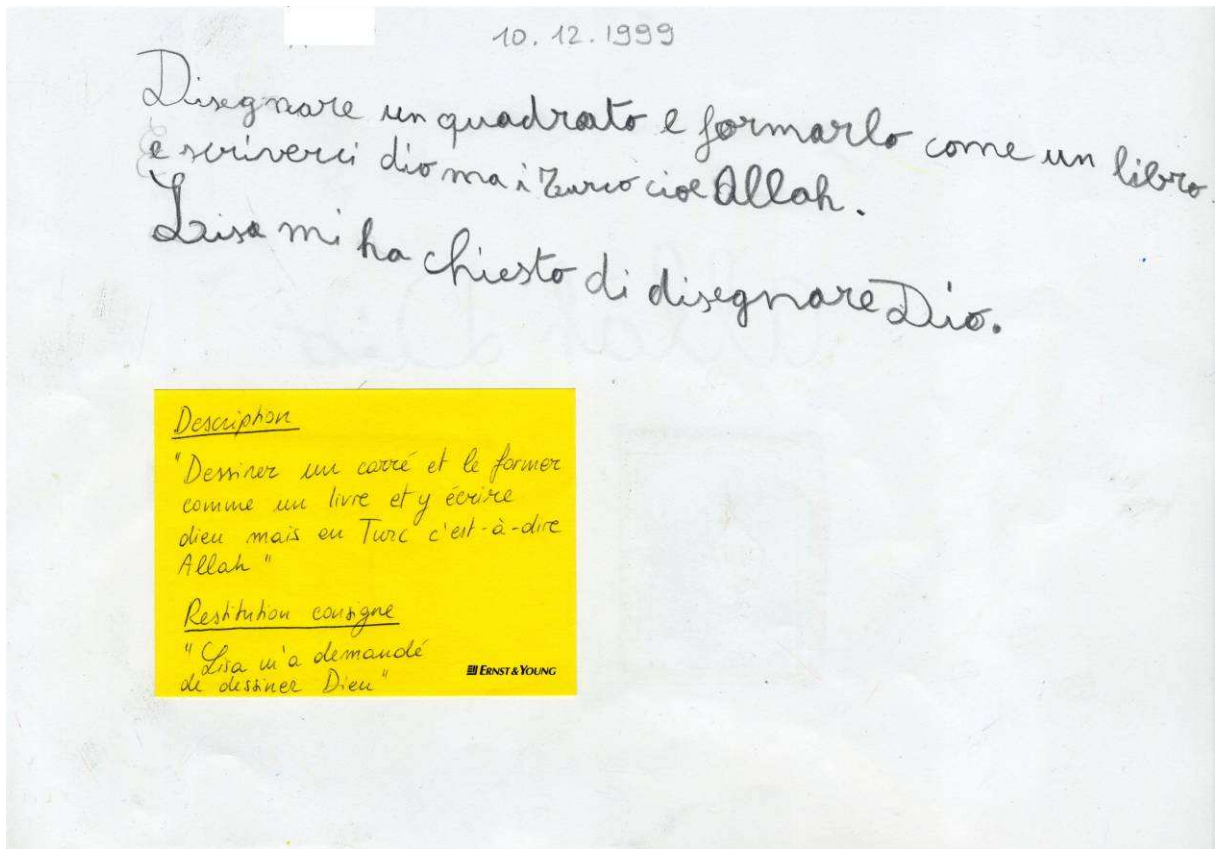 10.12.1999
Disegnare un quadrato e formarlo come un libro.
e scriverci dio ma i Turco cioe Allah.
Lisa mi ha chiesto di disegnare Dio.
Description
"Dessiner un carré et le former
comme un livre et y écrire
dieu mais en Turc c'est-à-dire
Allah"
Restitution consigne
"Lisa m'a demandé
de dessiner Dieu"
ERNST & YOUNG